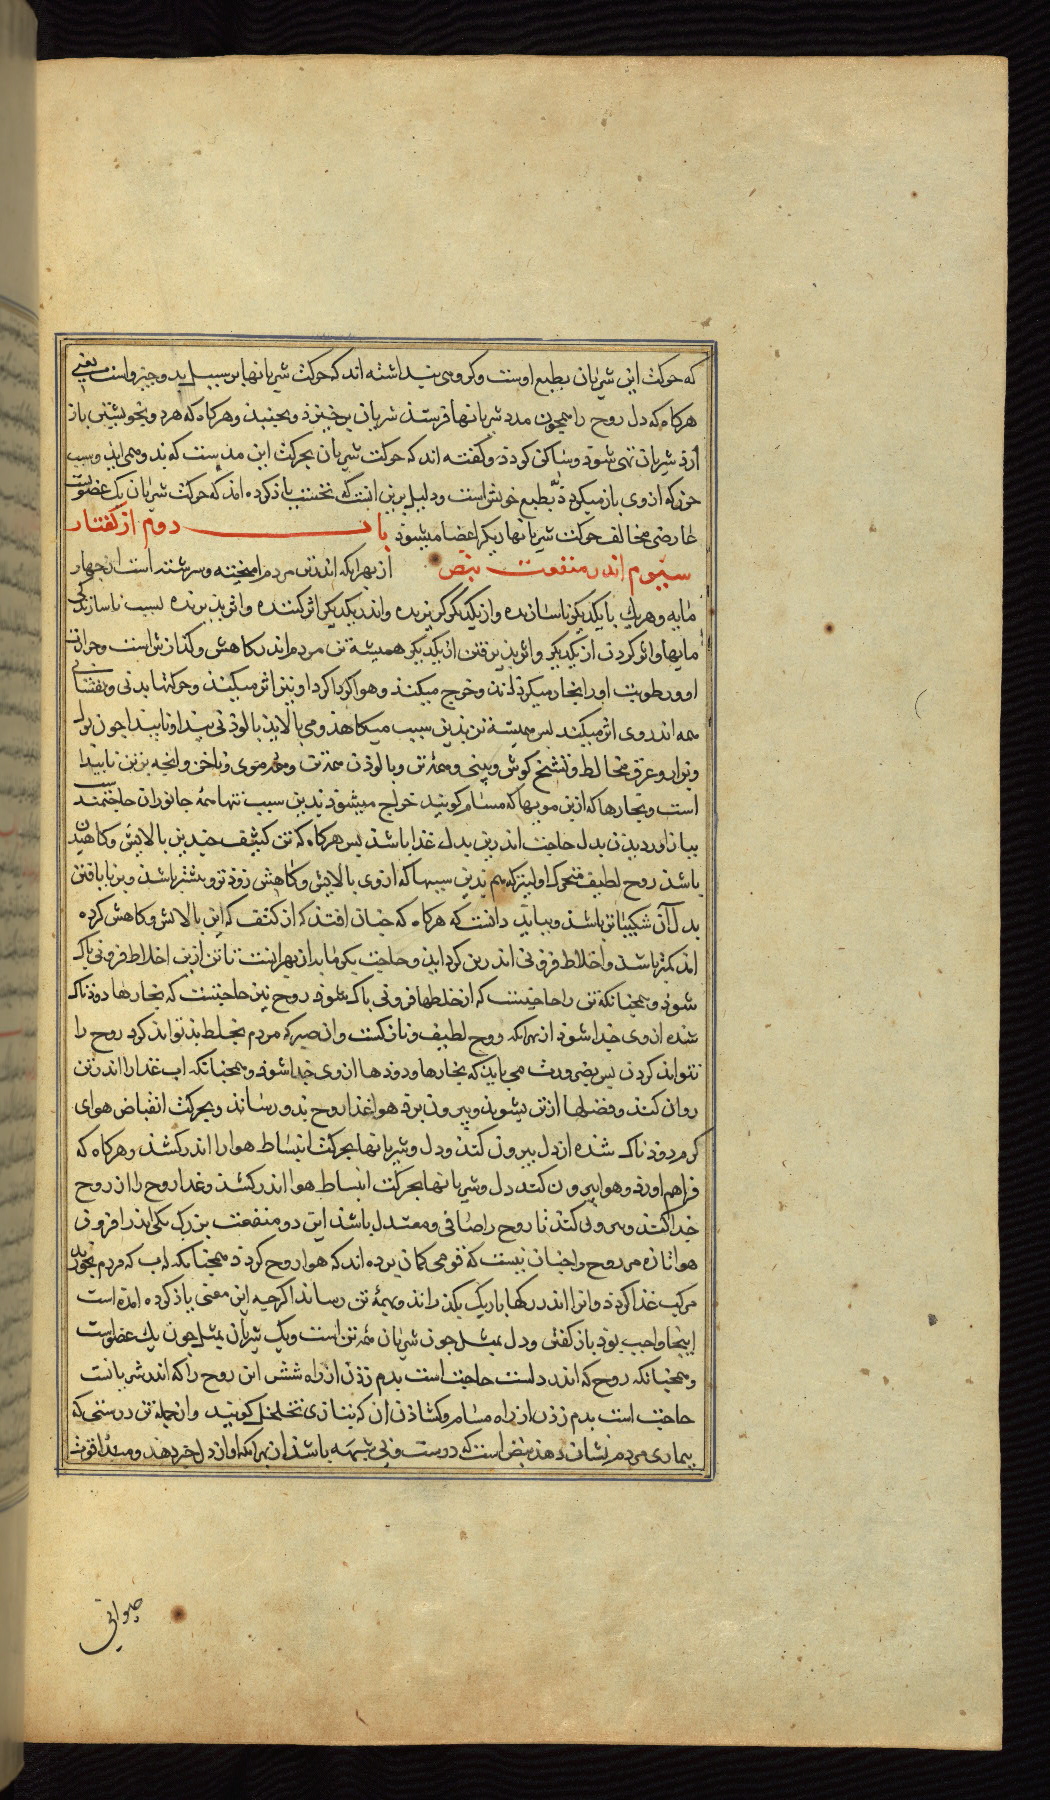 که حرکت این شریان بطبع اوست وکروهی پنداشته اند که حرکت شریانها بر سبیل مد وجزر است یعنی
هرکاه که دل روح را همچون مدد شریانها فرستد شریان برخیزد وبجنبد وهرکاه که هرد وبخویشتن باز
آرد شریان تهی شود وساکن کردد وکفته اند که حرکت شریان بحرکت این مدست که بدو می آید وسبب
جزر که ازوی باز میکردد بطبع خویش است ودلیل برین آنست که نخست یاذ کرده اند که حرکت شریان یک عضو بسبب
عارضی مخالف حرکت شریانهاء دیکر اعضا میشود باب دوم از کفتار
سیوم اندر منفعت نبض از بهر آنکه اندر تن مردم آمیخته وسرشته است از چهار
مایه وهریک بایکدیکر ناسازنده واز یکدیکر کریزنده واندر یکدیکر اثر کننده واثر پذیرنده بسبب ناسازندکی
مایها واثر کردن از یکدیکر واثر پذیرفتن از یکدیکر همیشه تن مردم اندر کاهش وکدازش است وحرارت
او ورطوبت اورا بخار میکرداند وخرج میکند وهوا کرداکرد او نیز اثر میکند وحرکتها بدنی ونفسانی
همه اندروی اثر میکند پس همیشه تن بدین سبب میکاهد ومی پالاید پالودنی پیدا وناپیدا چون بول
وبراز وعرق ومخاط وشخ کوش وبینی وهمه تن وپالودن همه تن وموی وناخن وآنچه بزتن ناپیدا
است وبخارها که ازین مویها که مسام کویند خراج میشود بدین سبب تنها همه جانوران حاجتمند
بباز آوردن بدل حاجت اندرین بدل غذا باشد پس هرکاه که تن کثیف چندین پالایش وکاهیدن
باشد روح لطیف متحرک اولیتر که هم بدین سببها که ازوی پالایش وکاهش زودتر وبیشتر باشد وبر نایافتن
بدل آن شکیبا تر باشد وبباید دانست که هرکاه که چنان افتد که از کثف که این پالایش وکاهش کرده
آمد کمتر باشد واخلاط فزونی اندرین کرد آید وحاجت یکی ماید از بهر اینست تا تن ازین اخلاط فزونی پاک
شود وهمچنانکه تن را حاجتست که از خلطها فزونی پاک شود روح نیز حاجتست که بخارها دودناک
شده ازوی جدا شود از بهر آنکه روح لطیف ونازکست وآن صبر که مردم بخلط بد تواند کرد روح را
نتواند کردن پس بضرورت می باید که بخارها ودودها ازوی جدا شود وهمچنانکه آب غذا را اندر تن
روان کند وفضلها از تن بشوید وبیرون برد هوا غذا روح بدو رساند وبحرکت انقباض هوای
کرم دودناک شده از دل بیرون کند ودل وشریانها بحرکت انبساط هوا را اندر کشد وهرکاه که
فراهم آورد وهوا بیرون کند دل وشریانها بحرکت انبساط هوا اندر کشد وغذا روح را از روح
جدا کند وبیرون کند تا روح را صافی ومعتدل باشد این دو منفعت بزرک یکی اندر افزودن
هوا تازه مر روح را چنان نیست که قومی کمان برده اند که هوا روح کردد همچنانکه آب که مردم بخورد
مرکب غذا کردد وآنرا اندر رکها باریک بکذراند وبهمه تن رساند اکرچه این معنی یاذ کرده آمده است
اینجا واجب بود باز کفتن ودل بمثل چون شریان همه تن است ویک شریان بمثل چون یک عضو است
وهمچنانکه روح که اندر دلست حاجت است بدم زدن از راه شش این روح را که اندر شریانست
حاجت است بدم زدن از راه مسام وکشادن آن که بتازی تخلخل کویند وآن جمله تن درستی که
بیماری مردم نشان دهد نبض است که درست وبی شبهه باشد از بهر آنکه او از دل خبر دهد ومبدا قوت
حیوانی